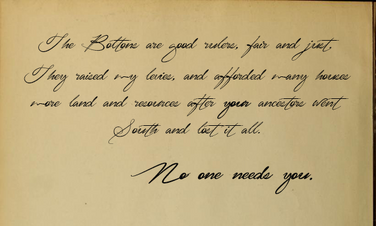 The Boltons are good rulers, fair and just.
They raised my levies, and afforded many houses
more land and resources after your ancestors went
South and lost it all.
No one needs you.